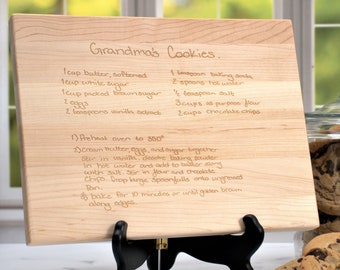 Grandma's Cookies.
1 cup butter, softened
1 cup white sugar
1 cup packed brown sugar
2 eggs
2 teaspoons vanilla extract
1 teaspoon baking soda
2 spoons hot water
½ teaspoon salt
3 cups all purpose flour
2 cups chocolate chips
1) Preheat oven to 350°
2) cream butter, eggs, and sugar together
Stir in vanilla. dissolve baking powder
in hot water and add to batter along
with salt. Stir in flour and chocolate
chips. Drop large spoonfuls onto ungreased
Pan.
3) bake for 10 minutes or until golden brown
along edges.